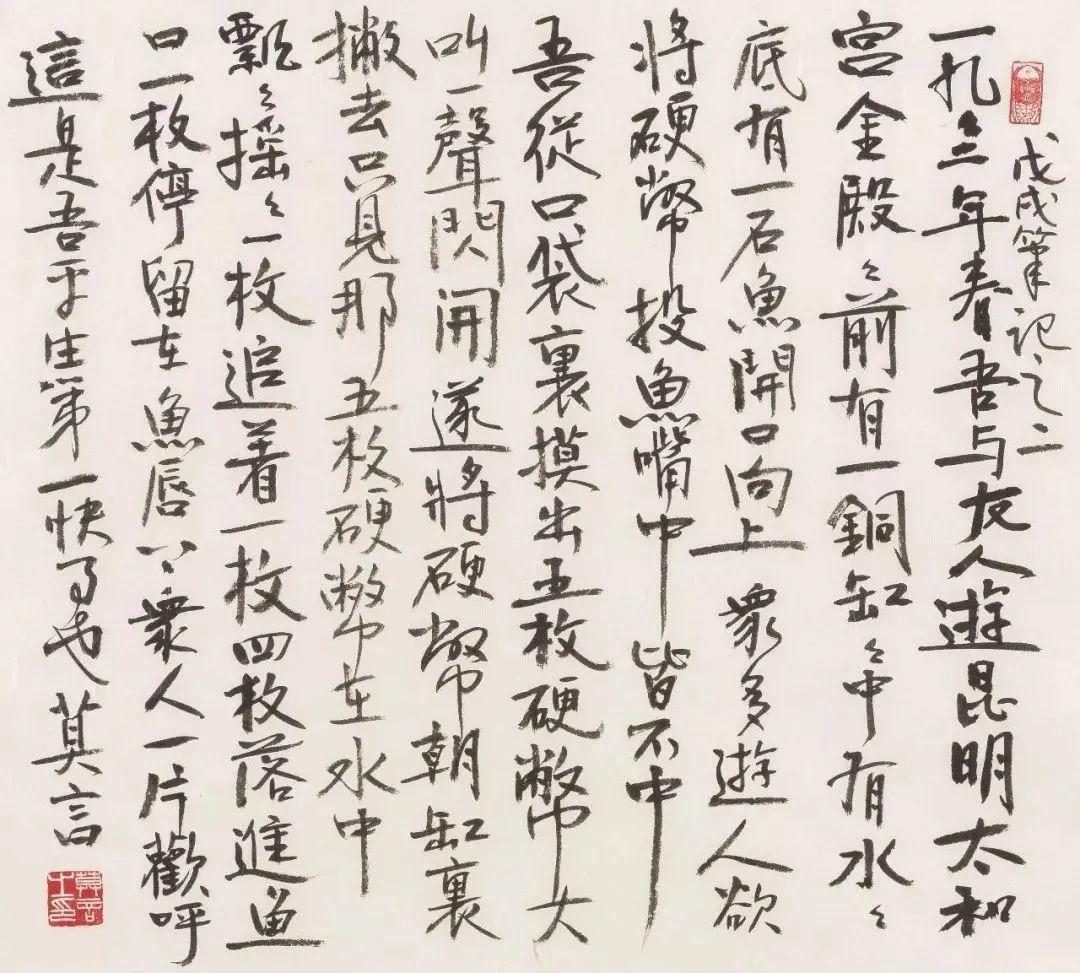 戊戌筆記之二
一九〻三年春吾与友人遊昆明太和
宮金殿〻前有一銅缸〻中有水〻
底有一石魚開口向上衆多遊人欲
將硬幣投魚嘴中皆不中
吾從口袋裏摸出五枚硬幣大
叫一聲閃開遂將硬幣朝缸裏
撇去只見那五枚硬幣在水中
飄〻搖〻一枚追着一枚四枚落進魚
口一枚停留在魚唇上衆人一片歡呼
這是吾平生第一快事也莫言